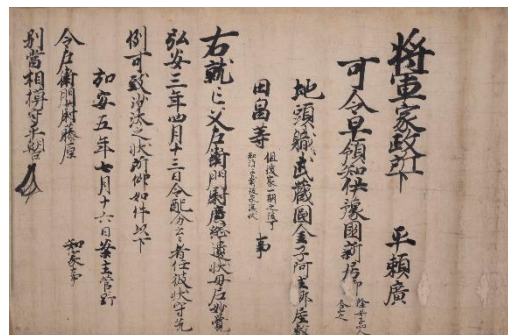 将軍家政所下 平頼廣
可令早領知伊豫國新居郷
地頭職武蔵國金子阿主郎屋敷
田畠等 事
右就亡父左衛門尉廣綱遺状母尼妙覺
弘安三年四月十三日令配分之者任彼状守先
例可致沙汰之状所仰如件以下
弘安五年七月十六日案主菅野
令左衛門尉藤原 知家事
別當相模守平朝臣